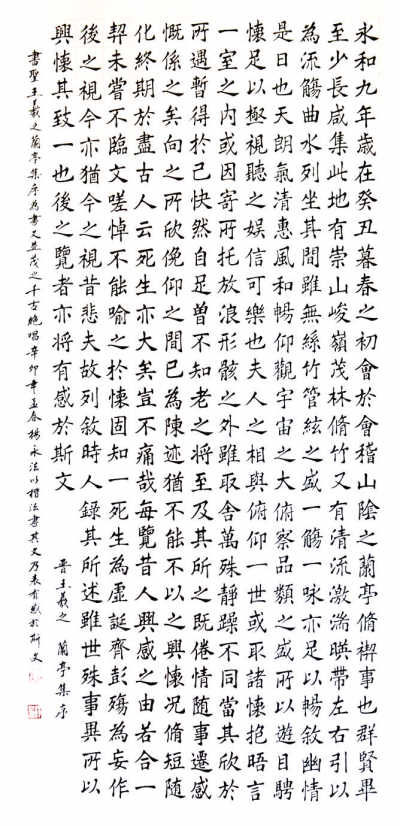 永和九年歲在癸丑暮春之初會於會稽山陰之蘭亭脩禊事也群賢畢
至少長咸集此地有崇山峻嶺茂林脩竹又有清流激湍暎帶左右引以
為流觴曲水列坐其間雖無絲竹管絃之盛一觴一咏亦足以暢敘幽情
是日也天朗氣清惠風和暢仰觀宇宙之大俯察品類之盛所以遊目騁
懷足以極視聽之娛信可樂也夫人之相與俯仰一世或取諸懷抱晤言
一室之內或因寄所托放浪形骸之外雖取舍萬殊靜躁不同當其欣於
所遇暫得於己快然自足曾不知老之將至及其所之既倦情隨事遷感
慨係之矣向之所欣俛仰之間已為陳迹猶不能不以之興懷况脩短隨
化終期於盡古人云死生亦大矣豈不痛哉每覽昔人興感之由若合一
契未嘗不臨文嗟悼不能喻之於懷固知一死生為虛誕齊彭殤為妄作
後之視今亦猶今之視昔悲夫故列敘時人錄其所述雖世殊事異所以
興懷其致一也後之覽者亦將有感於斯文
晉王羲之 蘭亭集序
書聖王羲之蘭亭集序為書文並茂之千古絕唱辛卯年孟春楊永法以楷法書其文乃表有感於斯文